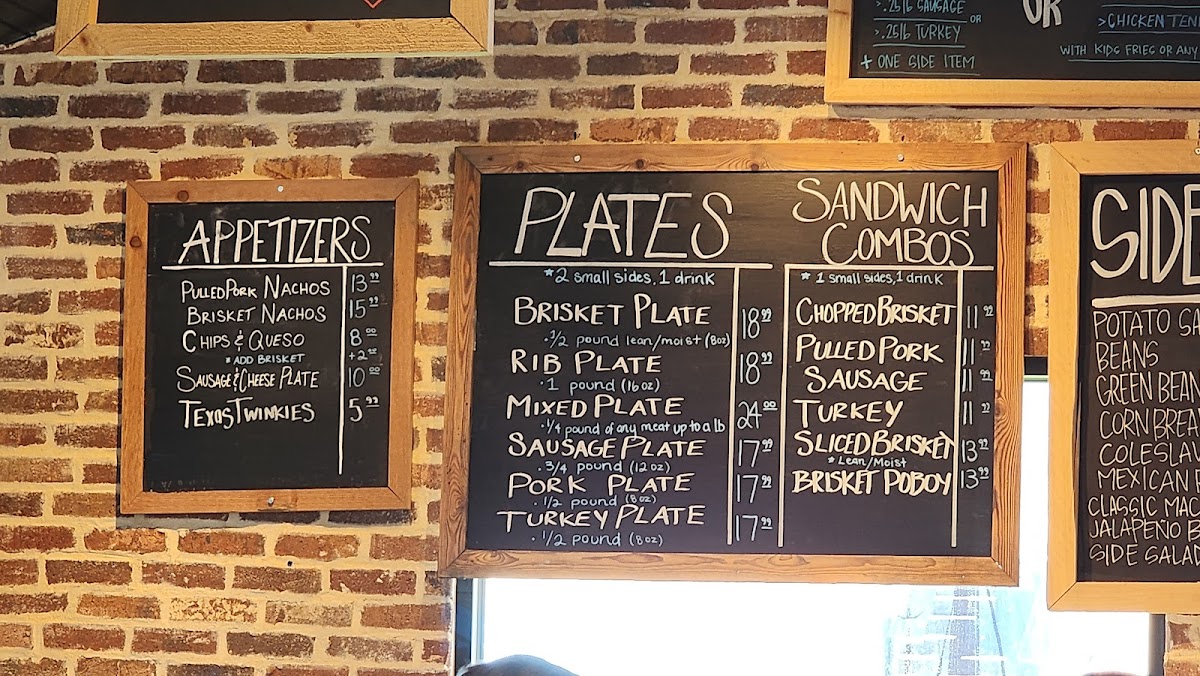 >.25lb SAUSAGE
OR
>.25lb TURKEY
+ ONE SIDE ITEM
OR
>CHICKEN
WITH KIDS FRIES OR ANY
APPETIZERS
PULLED PORK NACHOS 13.99
BRISKET NACHOS 15.99
CHIPS & QUESO 8.00
*ADD BRISKET +2.00
SAUSAGE & CHEESE PLATE 10.00
TEXAS TWINKIES 5.99
PLATES
*2 small sides, 1 drink
BRISKET PLATE 18.99
• 1/2 pound lean/moist (8oz)
RIB PLATE 18.99
• 1 pound (16oz)
MIXED PLATE 24.00
• 1/4 pound of any meat up to a lb
SAUSAGE PLATE 17.99
• 3/4 pound (12oz)
PORK PLATE 17.99
• 1/2 pound (8oz)
TURKEY PLATE 17.99
• 1/2 pound (8oz)
SANDWICH
COMBOS
* 1 small sides, 1 drink
CHOPPED BRISKET 11.99
PULLED PORK 11.99
SAUSAGE 11.99
TURKEY 11.99
SLICED BRISKET 13.99
*Lean/Moist
BRISKET POBOY 13.99
SIDE
POTATO
BEANS
GREEN BEAN
CORNBREA
COLESLAW
MEXICAN
CLASSIC MAC
JALAPEÑO
SIDE SALAD